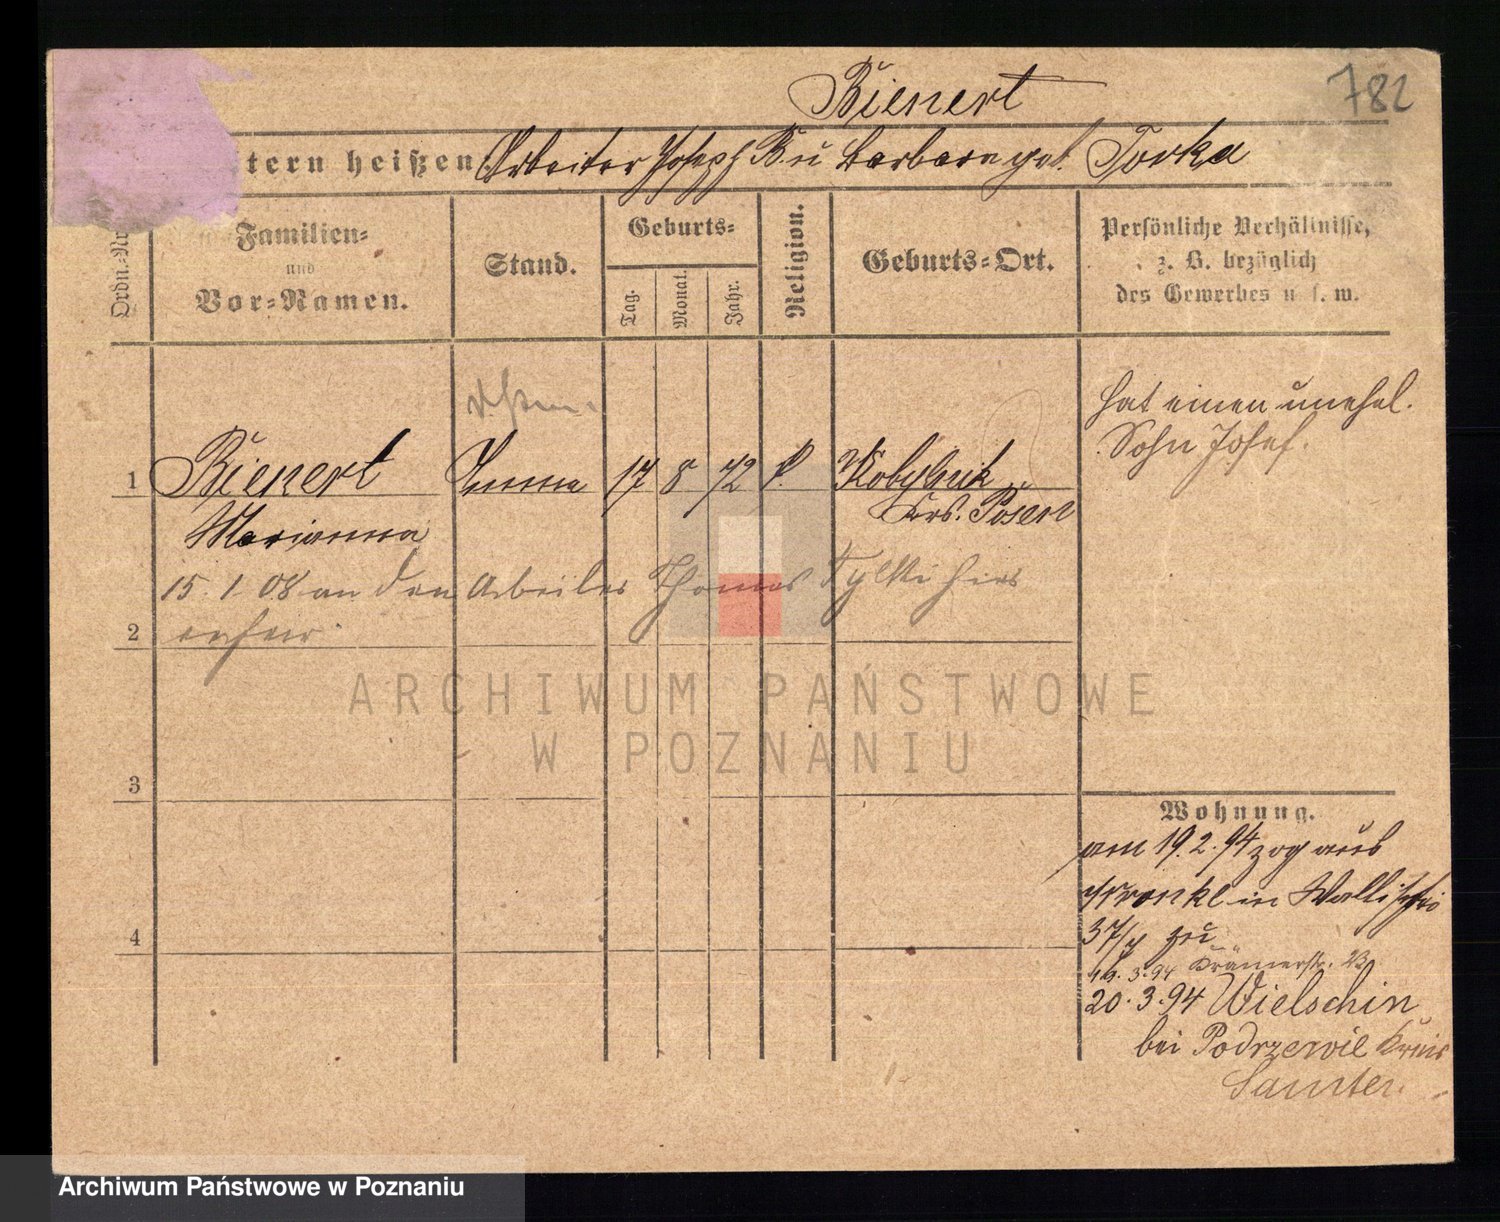 782
Bienert
tern heißen: Arbeiter Joseph B u Barbara geb. Torka
Ordn.-Nr
Familien-
und
Vor-Namen.
Stand.
Geburts-
Tag.
Monat.
Jahr.
Religion.
Geburts-Ort.
Persönliche Verhältnisse,
z. B. bezüglich
des Gewerbes u. s. w.
hat einen unehel.
Sohn Josef.
1 Bienert 17 8 72 k. Kobylnik
Marianna Krs. Posen
15. 1 08 an den Arbeiter Thomas hier
2
3
4
Wohnung.
am 19. 2. 94 zog aus
in Wallischei
37/ zu
3.94 Krämerstr. 23
20. 3. 94 Wielschin
bei Podrzewie Kreis
Samter.
ARCHIWUM PAŃSTWOWE
W POZNANIU
Archiwum Państwowe w Poznaniu